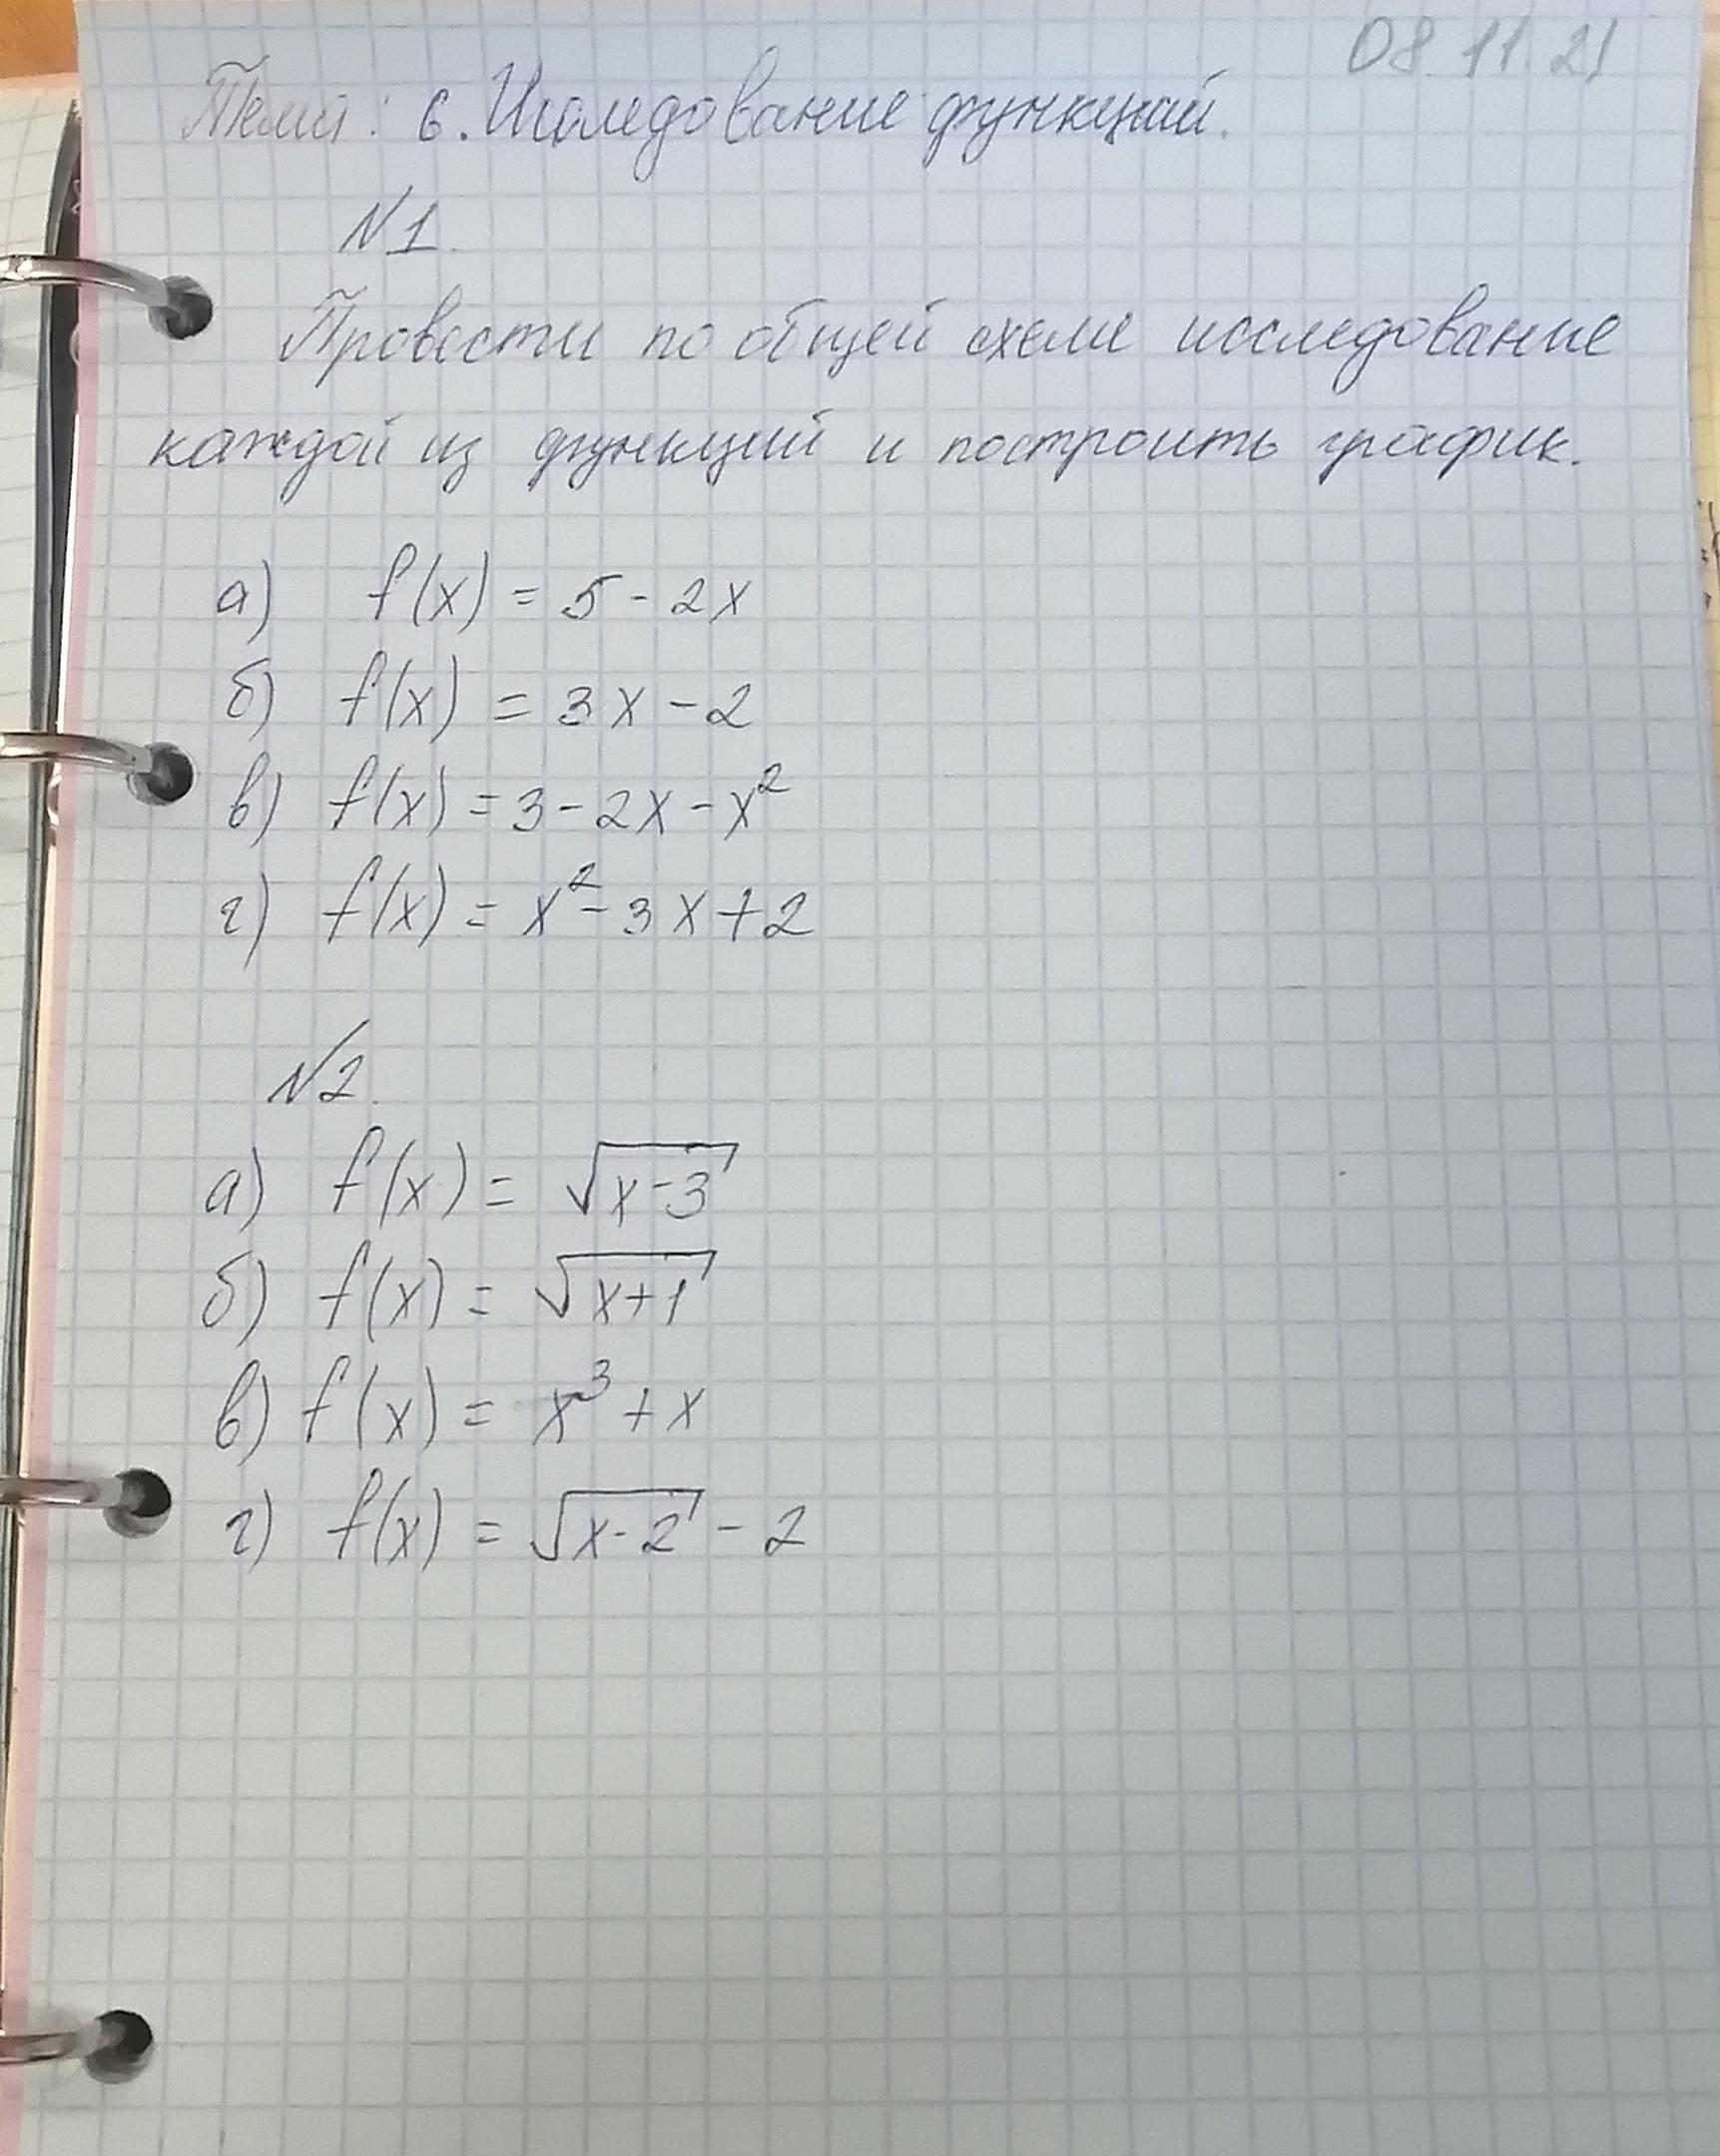 08.11.21
Тема: 6. Исследование функций.
№1.
Провести по общей схеме исследование
каждой из функций и построить график.
а) f(x) = 5 - 2x
б) f(x) = 3x - 2
в) f(x) = 3 - 2x - x²
г) f(x) = x² - 3x + 2
№2.
а) f(x) = √(x-3)
б) f(x) = √(x+1)
в) f(x) = x³ + x
г) f(x) = √(x-2) - 2